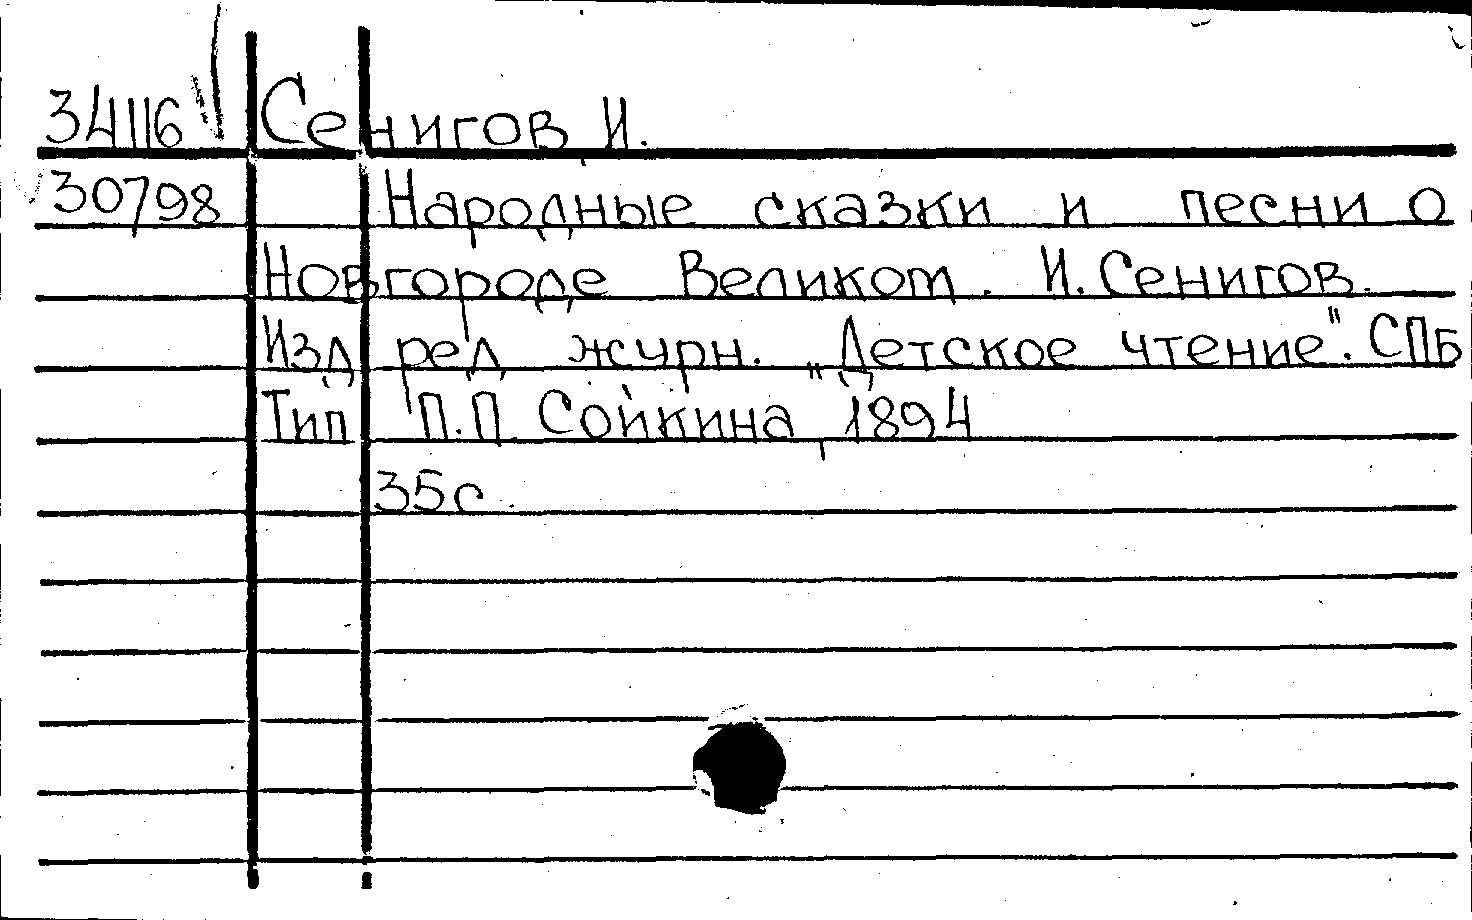 34116 Сенигов И.
30798 Народные сказки и песни о
Новгороде Великом. И. Сенигов.
Изд ред журн. „Детское чтение". СПБ
Тип П.П Сойкина, 1894
35с.